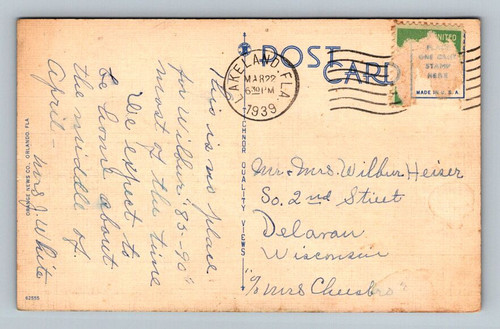 POST
CARD
PLACE
ONE CENT
STAMP
HERE
UNITED
MADE IN U.S.A.
LAKELAND, FLA.
MAR 22
6 30 PM
1939
This is no place
for Wilbur "85-90"
most of the time
We expect to
be home about
the middle of
April —
Mrs J. White
Mr. Mrs. Wilbur Heiser
So. 2nd Street
Delavan
Wisconsin
"c/o Mrs Cheesbro"
TECHNOR QUALITY VIEWS
ORANGE NEWS CO., ORLANDO, FLA
62995